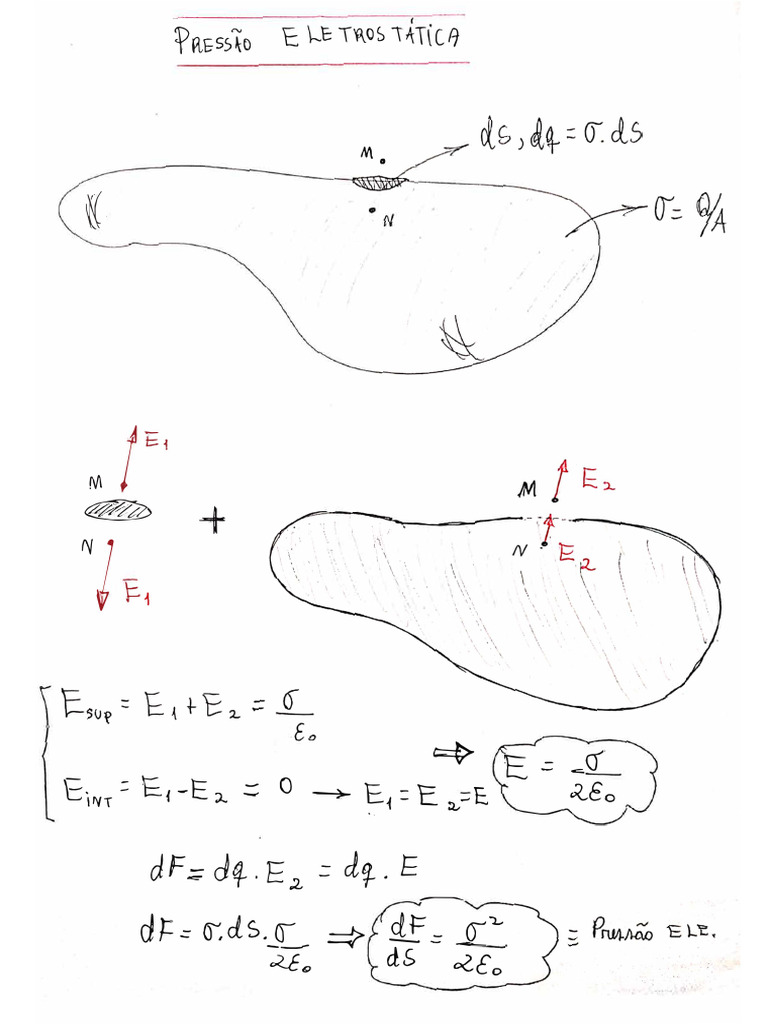 PRESSÃO ELETROSTÁTICA
M
dS, dq = σ.dS
N
σ = Q/A
E₁
M
N
E₁
+
M
E₂
N
E₂
E_SUP = E₁ + E₂ = σ/ε₀
E_INT = E₁ - E₂ = 0 → E₁ = E₂ = E ⇒ E = σ/2ε₀
dF = dq . E₂ = dq . E
dF = σ.dS. σ/2ε₀ ⇒ dF/dS = σ²/2ε₀ ≡ Pressão ELE.